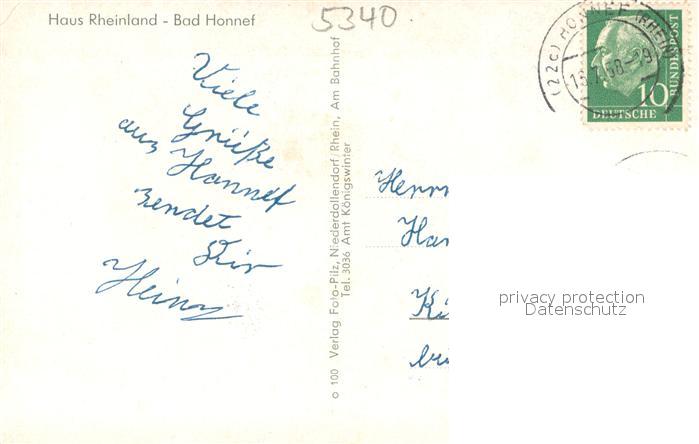 Haus Rheinland - Bad Honnef
5340
Viele
Grüße
aus Honnef
sendet
Dir
Heinz
o 100 Verlag Foto-Pilz, Niederdollendorf/Rhein, Am Bahnhof
Tel. 3036 Amt Königswinter
(22c) HONNEF (RHEIN)
10
DEUTSCHE
BUNDESPOST
Herrn
privacy protection
Datenschutz